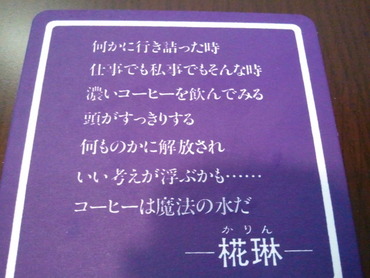 何かに行き詰った時
仕事でも私事でもそんな時
濃いコーヒーを飲んでみる
頭がすっきりする
何ものかに解放され
いい考えが浮ぶかも……
コーヒーは魔法の水だ
かりん
—椛琳—